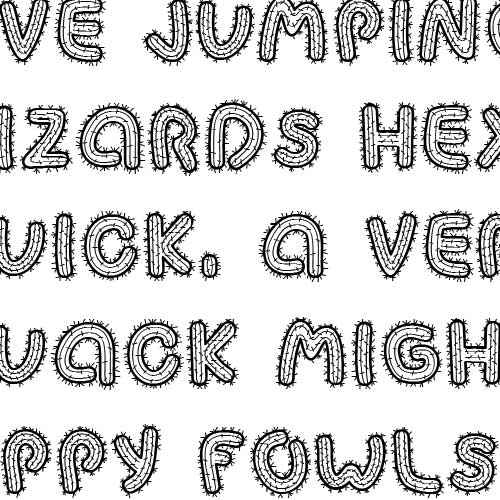 VE JUMPING
IZARDS HEX
UICK. A VER
UACK MIGH
PPY FOWLS